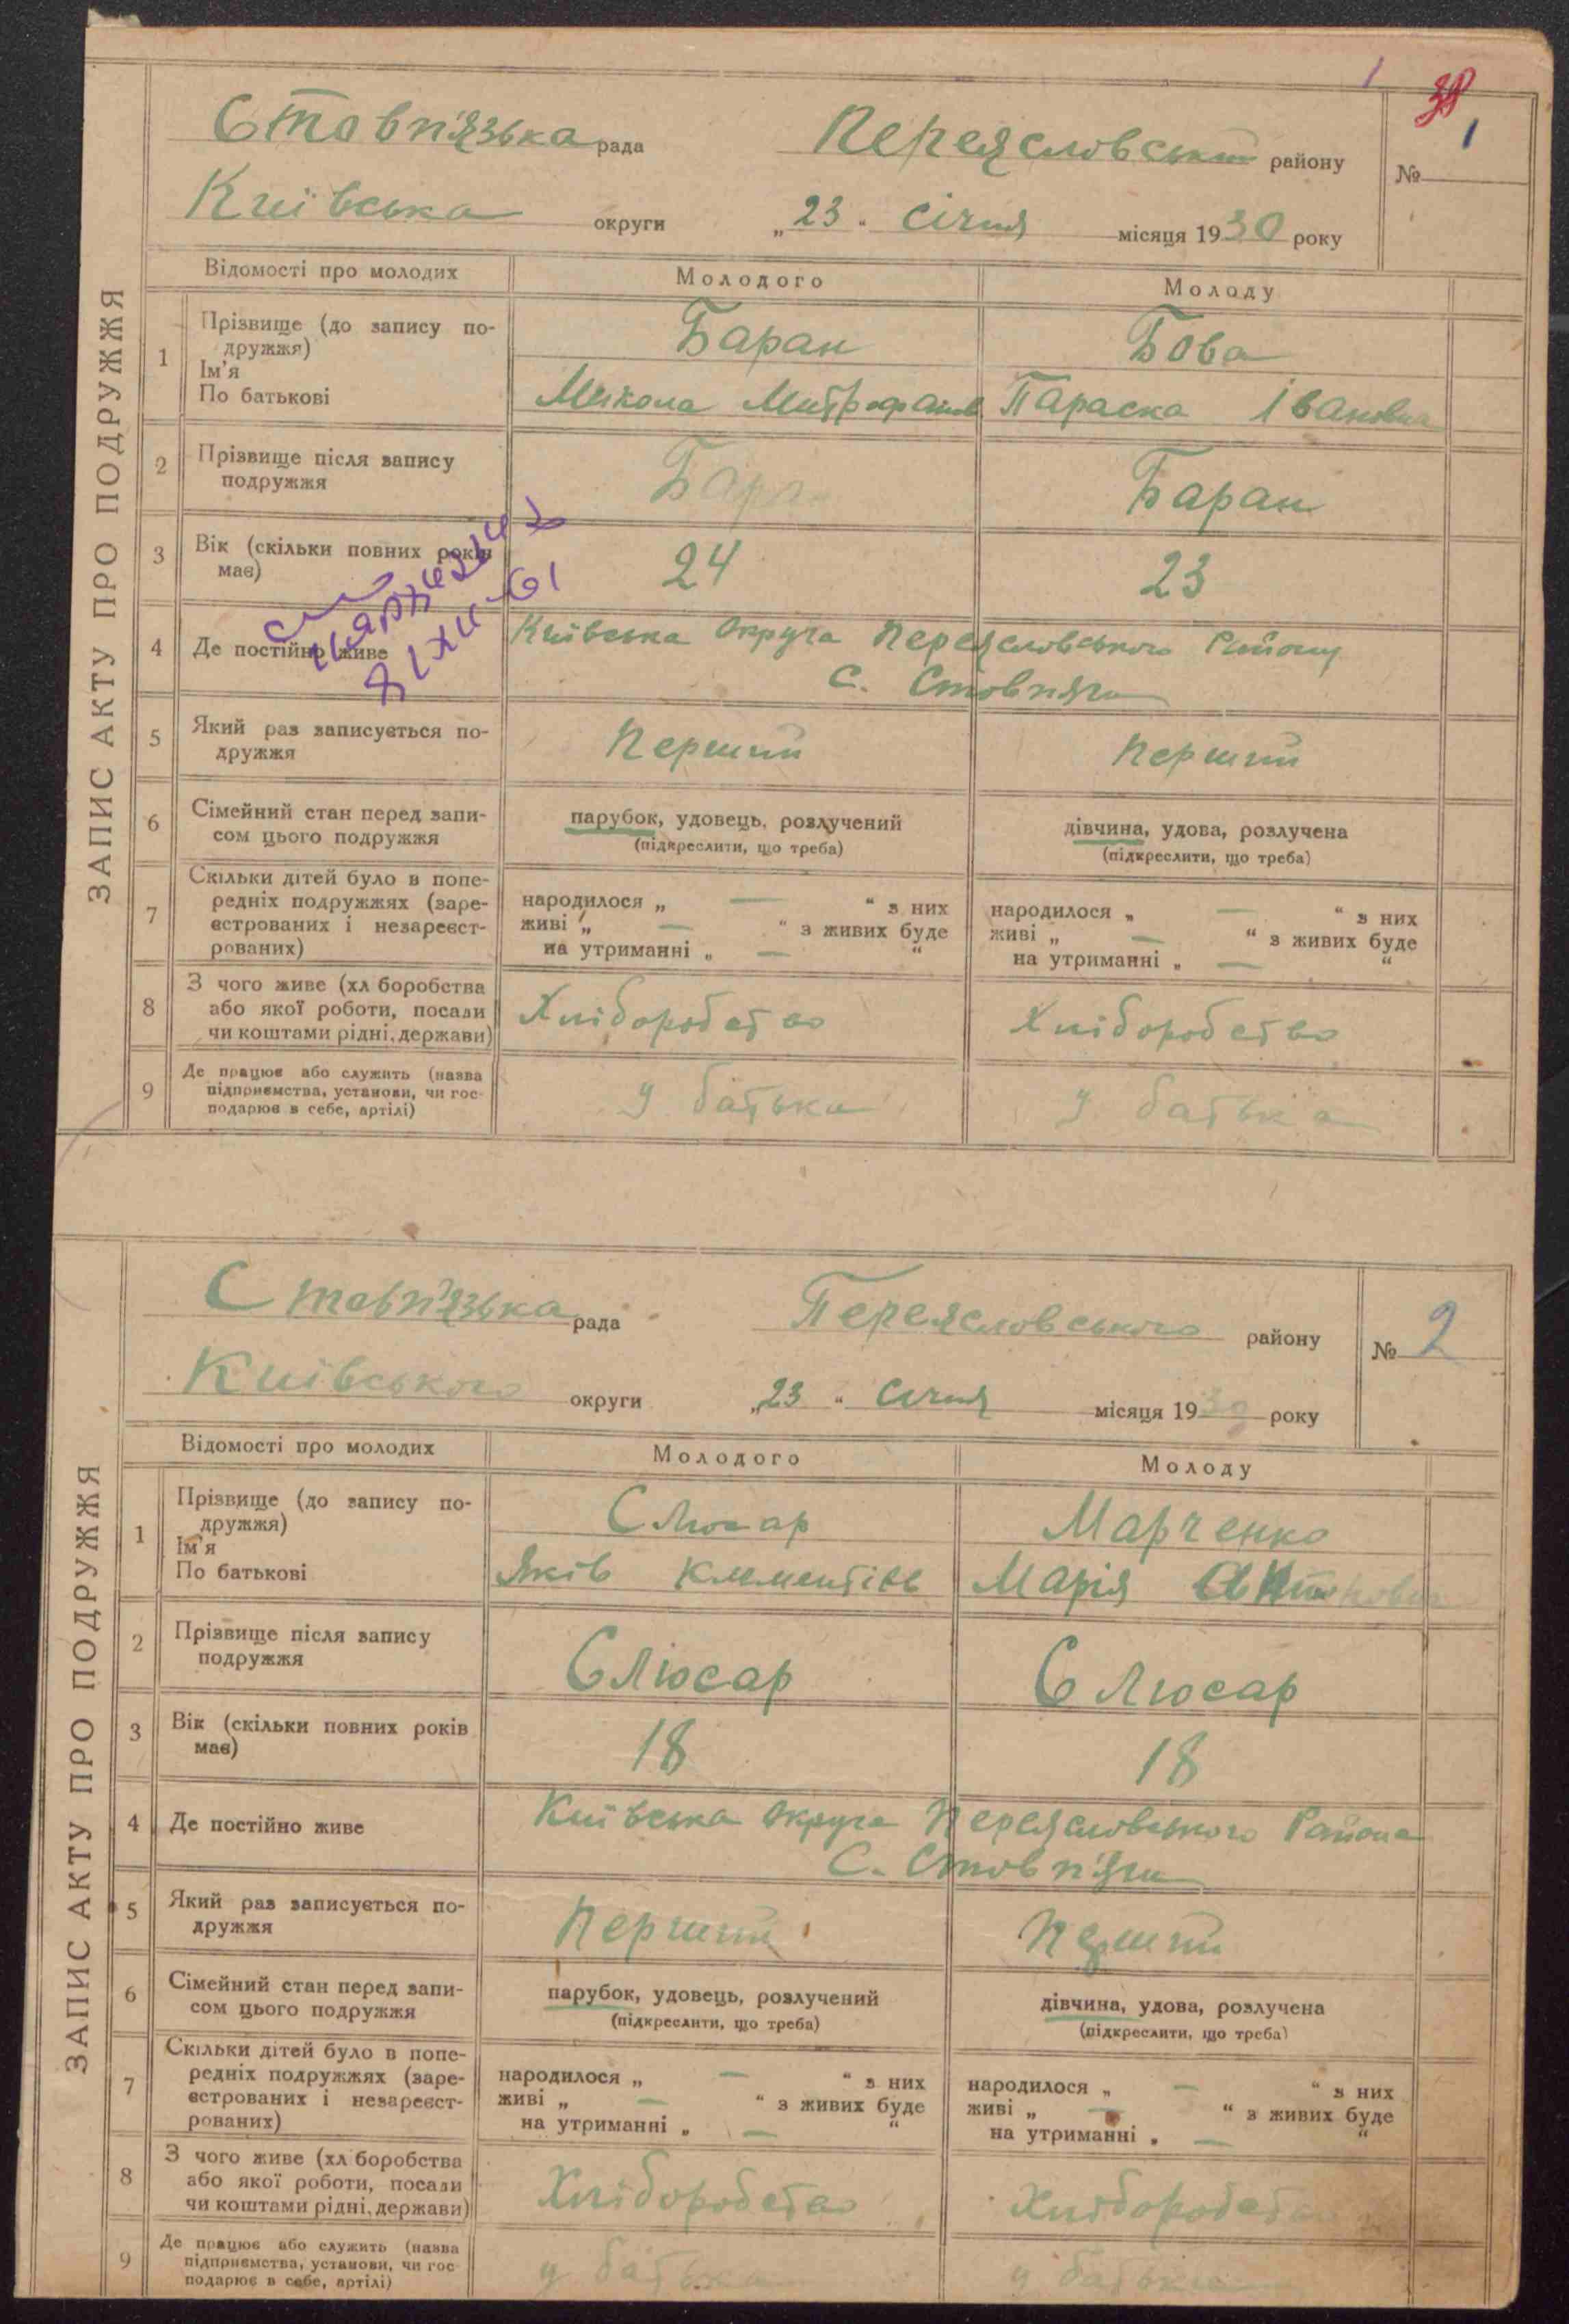 1
38
Стовп'язька рада Переясловський району № 1
Київська округи „ 23 “ Січня місяця 1930 року
ЗАПИС АКТУ ПРО ПОДРУЖЖЯ
Відомості про молодих Молодого Молоду
1 Прізвище (до запису по-
дружжя) Баран Бова
Ім'я
По батькові Микола Митрофанов Параска Івановна
2 Прізвище після запису
подружжя Баран Баран
3 Вік (скільки повних років
має) 24 23
4 Де постійно живе Київська Округа Переясловського Району
С. Стовпяги
5 Який раз записується по-
дружжя Перший Перший
6 Сімейний стан перед запи-
сом цього подружжя парубок, удовець, розлучений дівчина, удова, розлучена
(підкреслити, що треба) (підкреслити, що треба)
7 Скільки дітей було в попе-
редніх подружжях (заре-
єстрованих і незареєст-
рованих)
народилося „ — “ з них народилося „ — “ з них
живі „ — “ з живих буде живі „ — “ з живих буде
на утриманні „ — “ на утриманні „ — “
8 З чого живе (хл боробства
або якої роботи, посади
чи коштами рідні, держави) Хліборобство Хліборобство
9 Де працює або служить (назва
підприємства, установи, чи гос-
подарює в себе, артілі) у батька у батька
Стовп'язька рада Переясловського району № 2
Київського округи „ 23 “ Січня місяця 1930 року
ЗАПИС АКТУ ПРО ПОДРУЖЖЯ
Відомості про молодих Молодого Молоду
1 Прізвище (до запису по-
дружжя) Слюсар Марченко
Ім'я
По батькові Яків Клементієв Марія
2 Прізвище після запису
подружжя Слюсар Слюсар
3 Вік (скільки повних років
має) 18 18
4 Де постійно живе Київська Округа Переясловського Района
С. Стовп'яги
5 Який раз записується по-
дружжя Перший Перший
6 Сімейний стан перед запи-
сом цього подружжя парубок, удовець, розлучений дівчина, удова, розлучена
(підкреслити, що треба) (підкреслити, що треба)
7 Скільки дітей було в попе-
редніх подружжях (заре-
єстрованих і незареєст-
рованих)
народилося „ — “ з них народилося „ — “ з них
живі „ — “ з живих буде живі „ — “ з живих буде
на утриманні „ — “ на утриманні „ — “
8 З чого живе (хл боробства
або якої роботи, посади
чи коштами рідні, держави) Хліборобство Хліборобство
9 Де працює або служить (назва
підприємства, установи, чи гос-
подарює в себе, артілі) у батька у батька